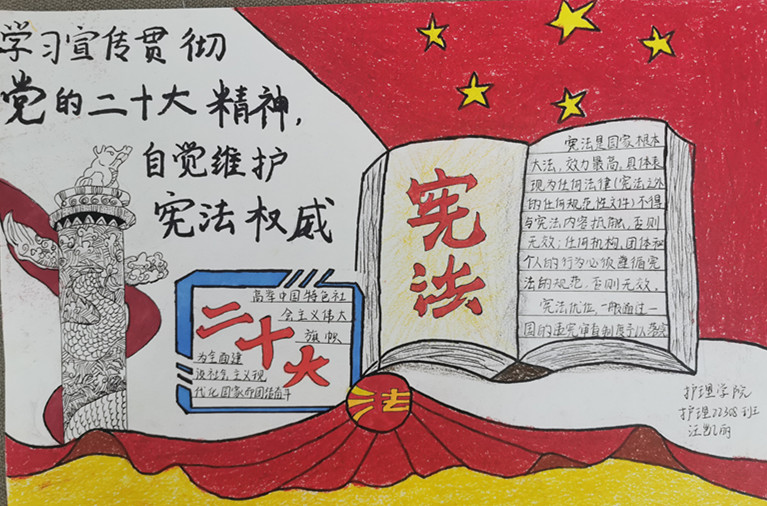 学习宣传贯彻
党的二十大精神，
自觉维护
宪法权威
高举中国特色社
会主义伟大
旗帜
二十大
为全面建
设社会主义现
代化国家而团结奋斗
法
宪法
宪法是国家根本
大法，效力最高，具体表
现为任何法律(宪法之外
的任何规范性文件)不得
与宪法内容抵触，否则
无效；任何机构，团体和
个人的行为必须遵循宪
法的规范，否则无效。
宪法优位，一般通过一
国的违宪审查制度予以落实
护理学院
护理22308班
汪凯丽